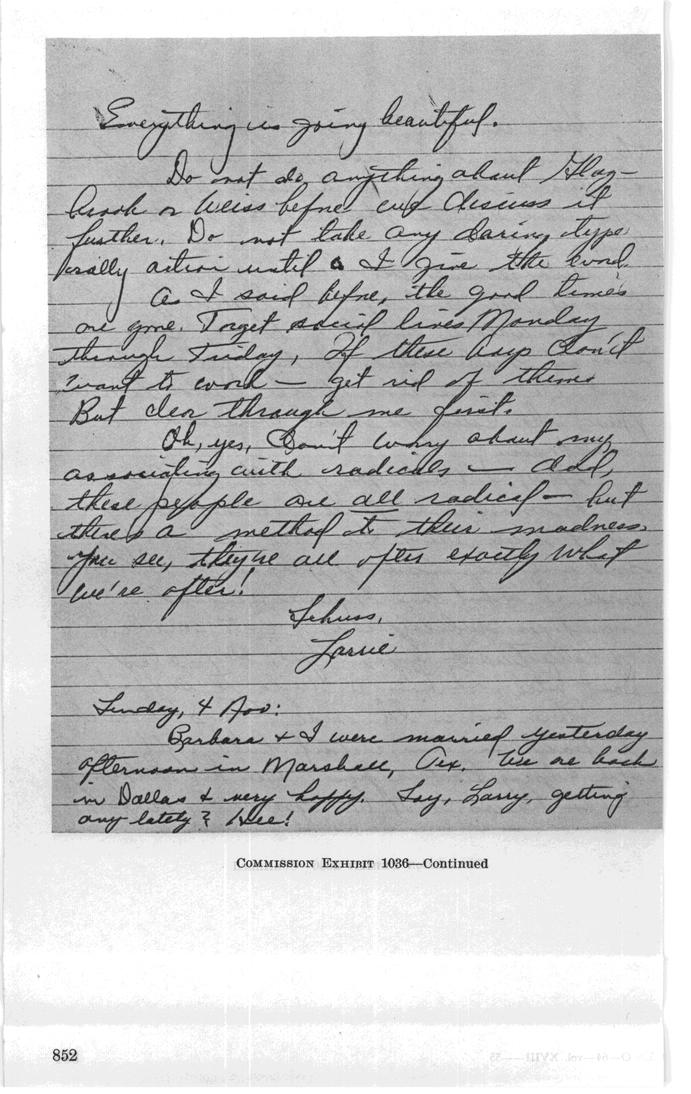 Everything is going beautiful.
Do not do anything about Glaz-
brook or Weiss before we discuss it
further. Do not take any daring type
really action until I give the word.
As I said before, the good times
are gone. Forget social lives Monday
through Friday, If these guys don't
want to work — get rid of them.
But clear through me first.
Oh, yes, Don't worry about my
associating with radicals — dad,
these people are all radical — but
there's a method to their madness.
You see, they're all after exactly what
we're after!
Schuss,
Larrie
Sunday, 4 Nov:
Barbara & I were married yesterday
afternoon in Marshall, Tex. We are back
in Dallas & very happy. Say, Larry, getting
any lately? Hee!
COMMISSION EXHIBIT 1036—Continued
852